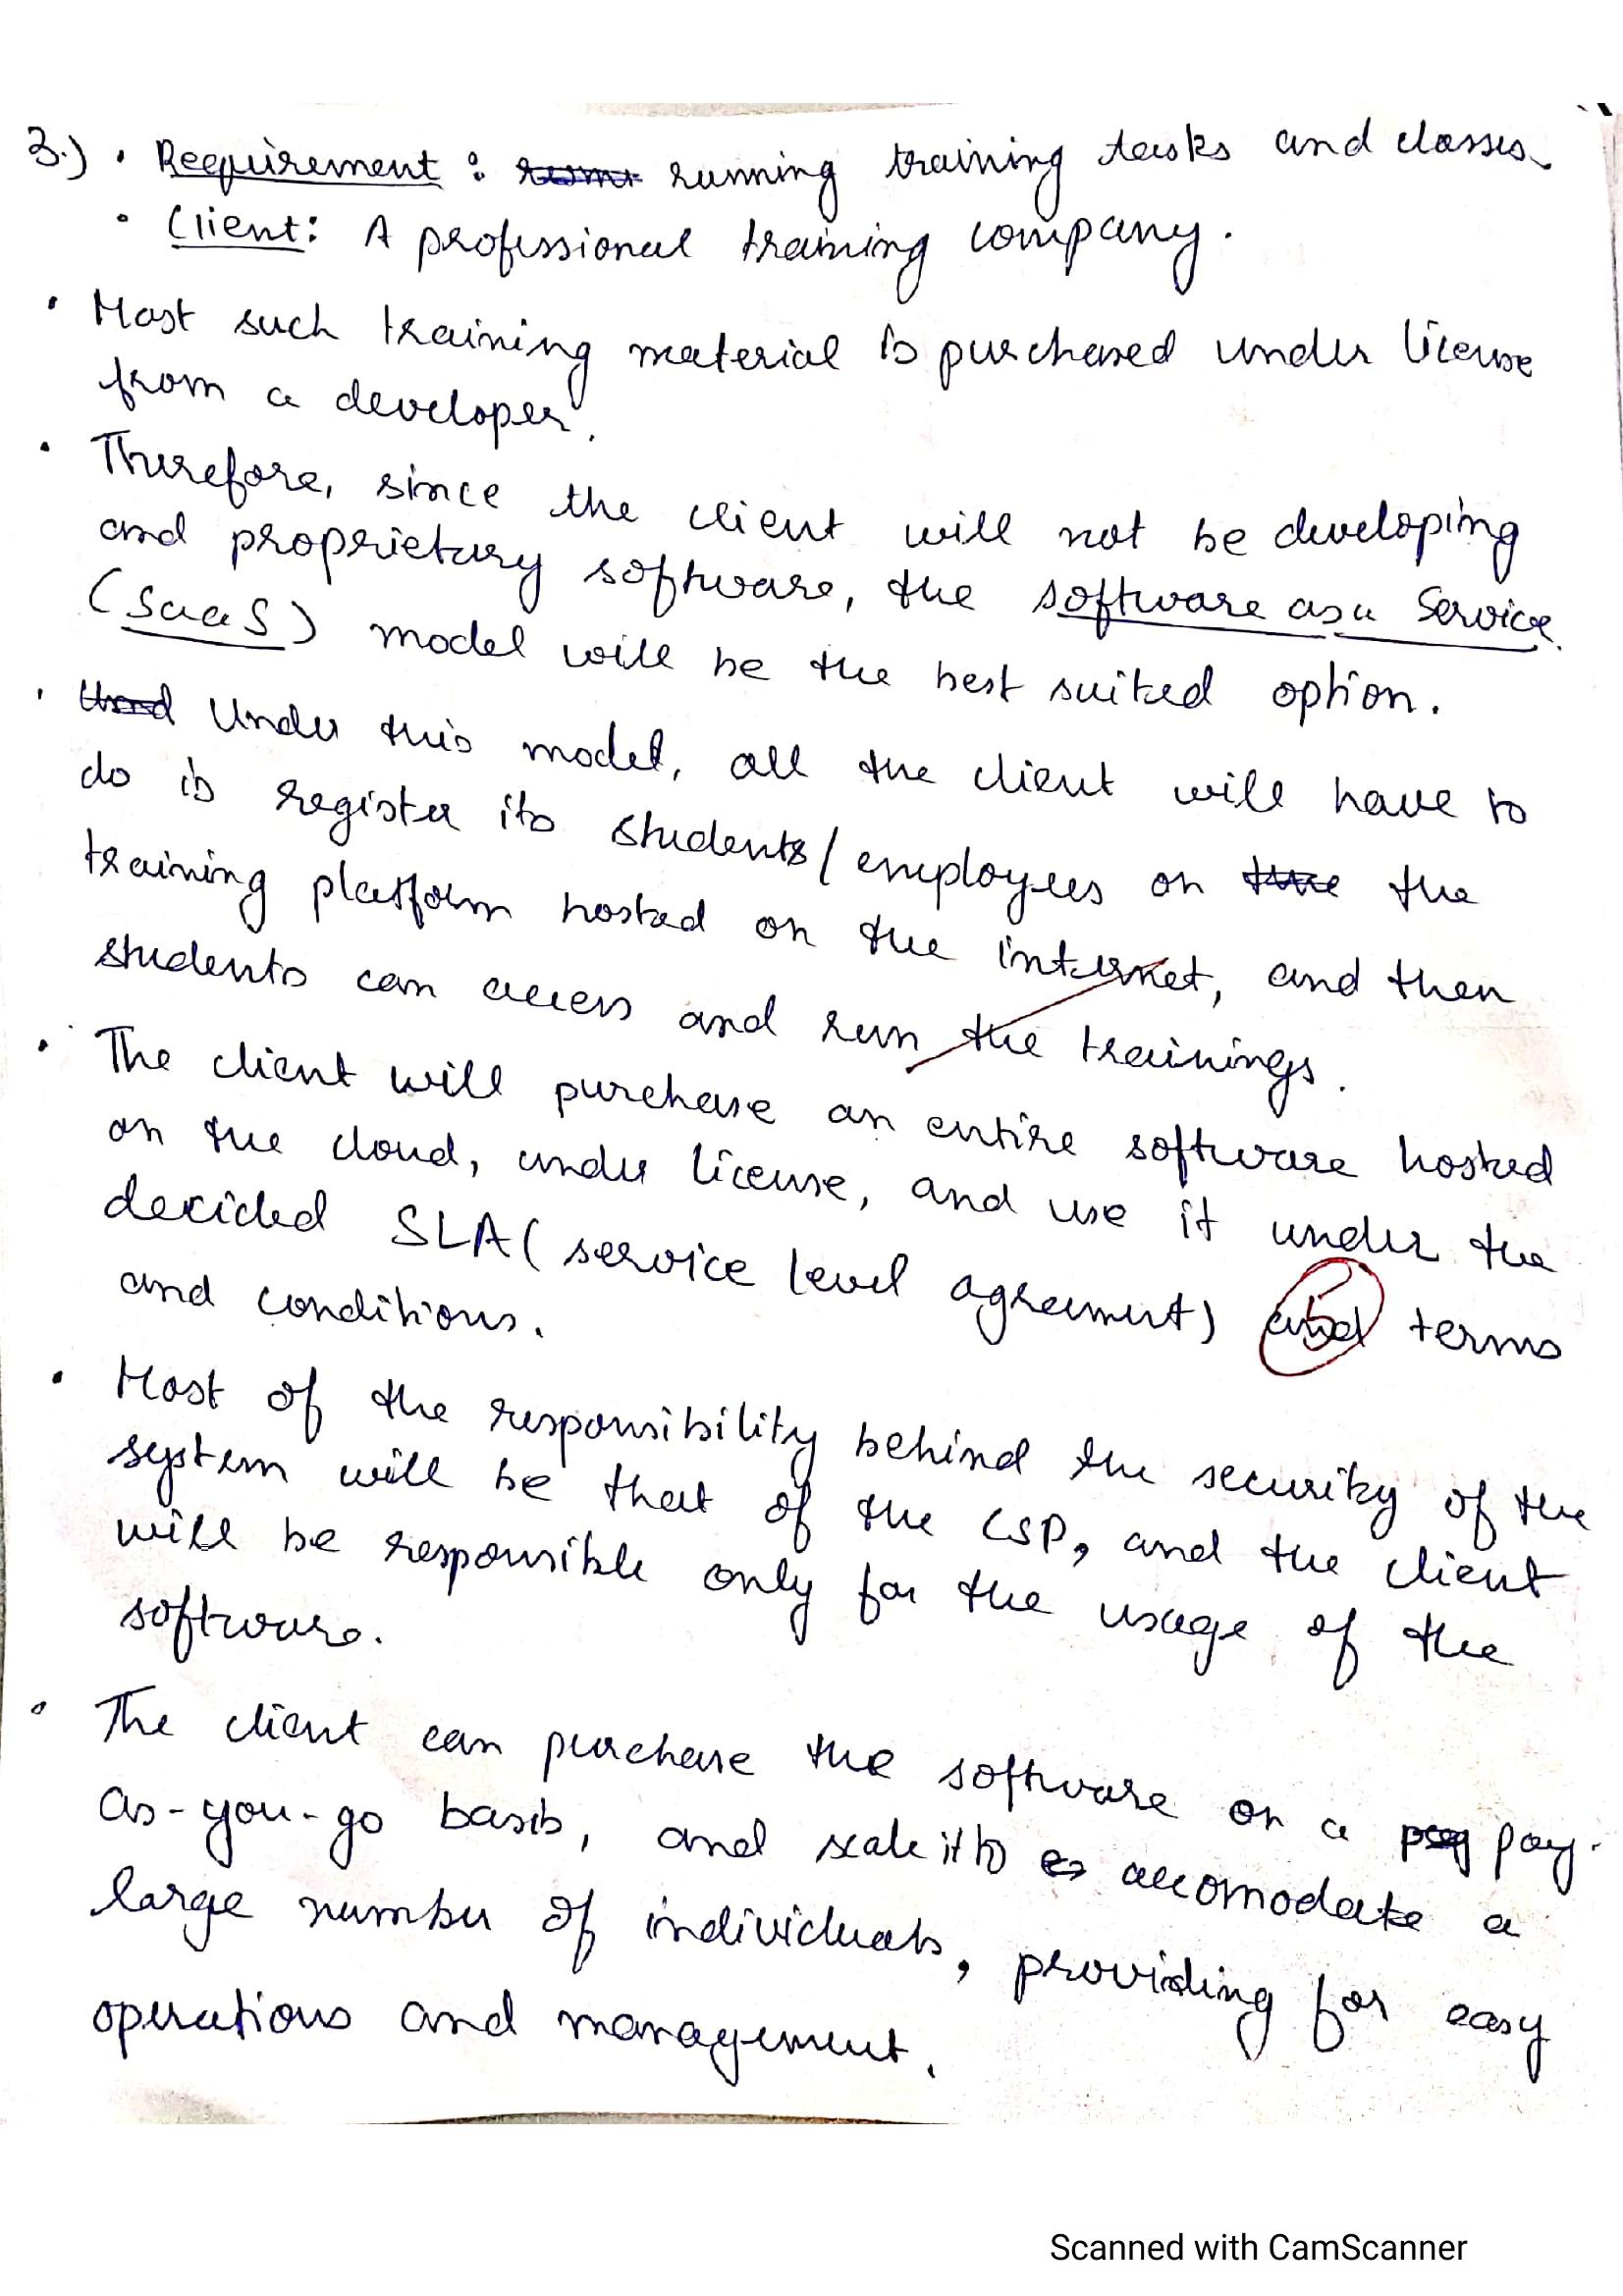 3.) • Requirement : running training tasks and classes.
• Client: A professional training company.
• Most such training material is purchased under license
from a developer.
• Therefore, since the client will not be developing
and proprietary software, the software as a Service
(SaaS) model will be the best suited option.
• Under this model, all the client will have to
do is register its students/employees on the
training platform hosted on the internet, and then
students can access and run the trainings.
• The client will purchase an entire software hosted
on the cloud, under license, and use it under the
decided SLA (service level agreement) and terms
5
and conditions.
• Most of the responsibility behind the security of the
system will be that of the CSP, and the client
will be responsible only for the usage of the
software.
• The client can purchase the software on a pay-
as-you-go basis, and scale it to accomodate a
large number of individuals, providing for easy
operations and management.
Scanned with CamScanner